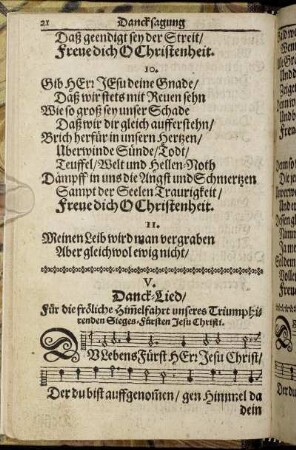 21 Dancksagung
Daß geendigt sey der Streit/
Freue dich O Christenheit.
10.
Gib HErr JEsu deine Gnade/
Daß wir stets mit Reuen sehn
Wie so groß sey unser Schade
Daß wir dir gleich aufferstehn/
Brich herfür in unsern Hertzen/
Uberwinde Sünde/Todt/
Teuffel/Welt und Hellen-Noth
Dämpff in uns die Angst und Schmertzen
Sampt der Seelen Traurigkeit/
Freue dich O Christenheit.
11.
Meinen Leib wird man vergraben
Aber gleichwol ewig nicht/
V.
Danck-Lied/
Für die fröliche Him̃elfahrt unseres Triumphi-
renden Sieges-Fürsten Jesu Christi.
DU Lebens Fürst HErr Jesu Christ/
Der du bist auffgenom̃en/ gen Himmel da
dein